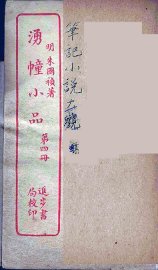 筆記小說大觀
明 朱國禎著
湧幢小品
第四冊
進步書局校印